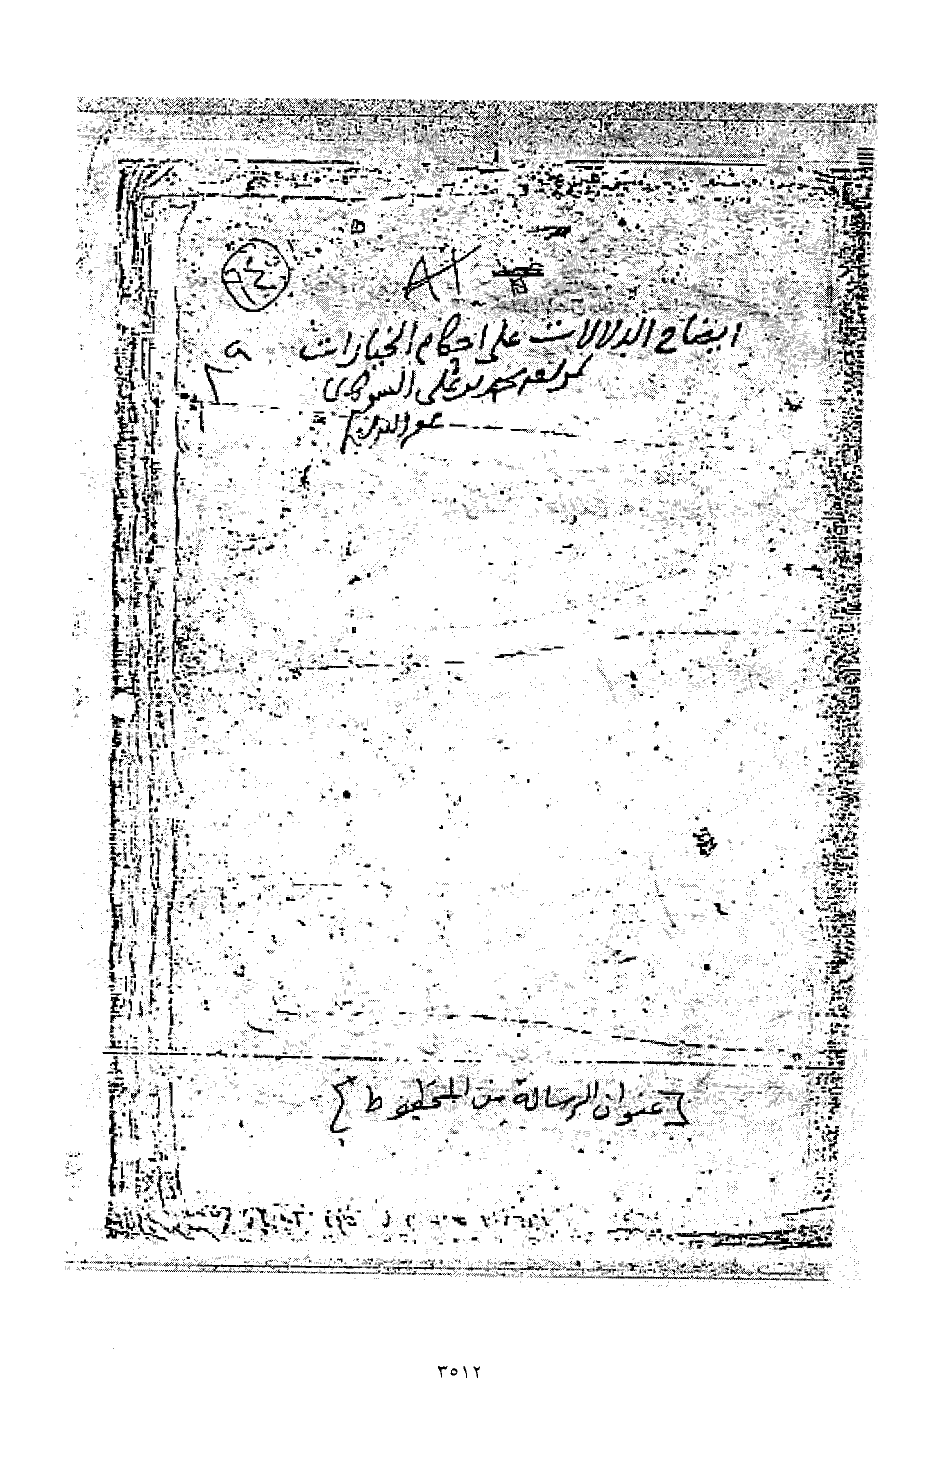 ٨٢
ايضاح الدلالات على احكام الخيارات
لمؤلفه محمد بن علي الشوكاني
غفر الله له
[عنوان الرسالة من المخطوط]
٣٥١٢